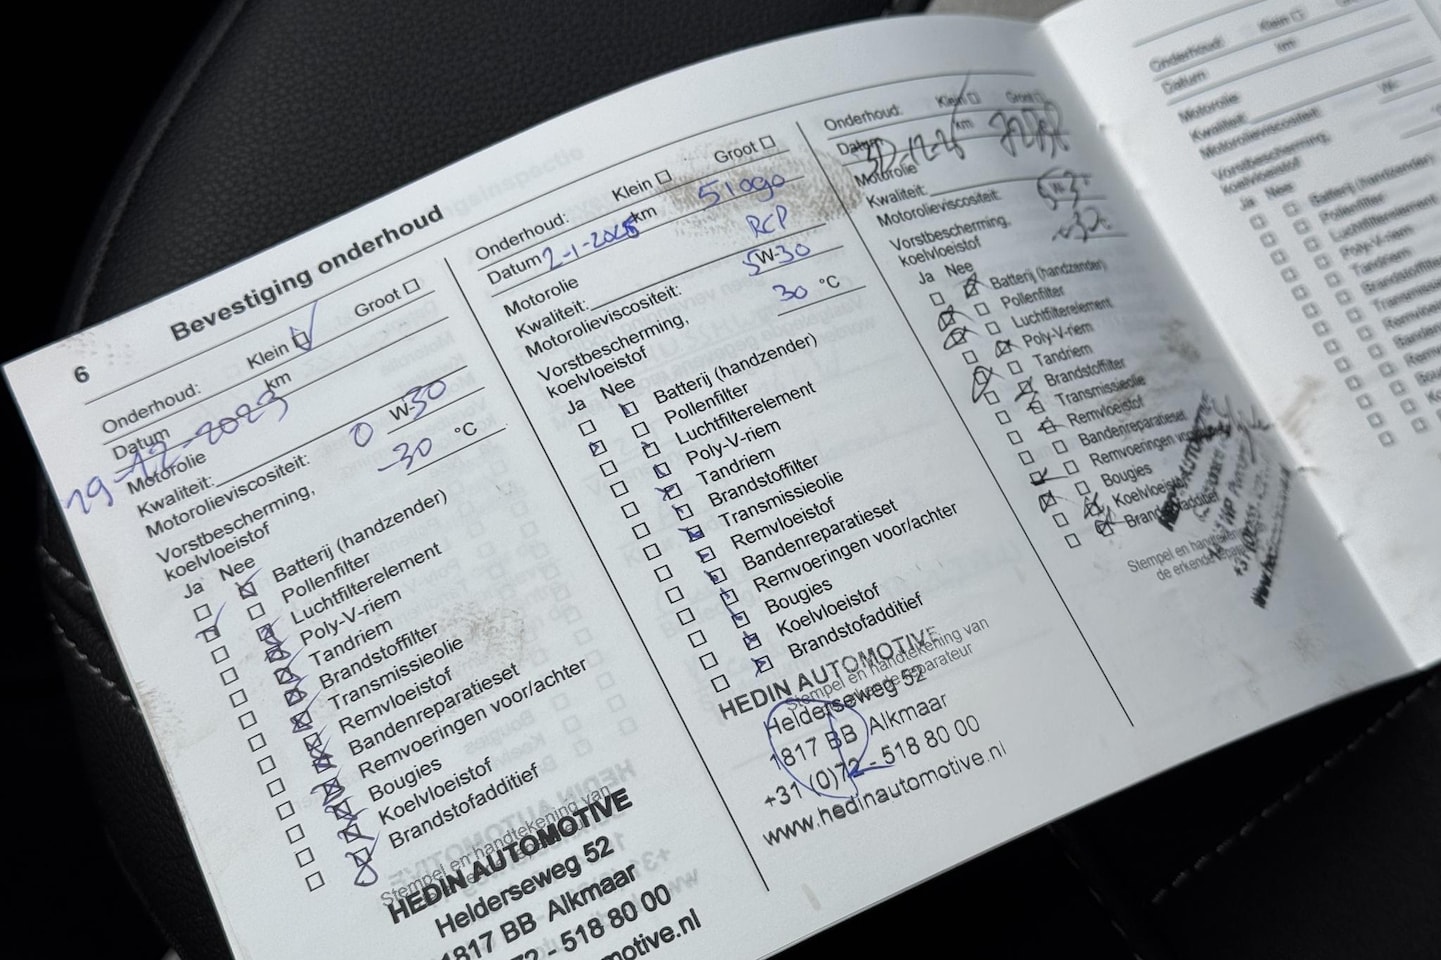 6
Bevestiging onderhoud
Onderhoud: Klein Groot
Datum km
19-12-2023
Motorolie
Kwaliteit:
Motorolieviscositeit: 0 W-30
Vorstbescherming,
koelvloeistof -30 °C
Ja Nee
Batterij (handzender)
Pollenfilter
Luchtfilterelement
Poly-V-riem
Tandriem
Brandstoffilter
Transmissieolie
Remvloeistof
Bandenreparatieset
Remvoeringen voor/achter
Bougies
Koelvloeistof
Brandstofadditief
Stempel en handtekening van
HEDIN AUTOMOTIVE
Helderseweg 52
1817 BB Alkmaar
72 - 518 80 00
motive.nl
Onderhoud: Klein Groot
Datum 2-1-2025 km 51090
Motorolie
Kwaliteit: RCP
Motorolieviscositeit: 5W-30
Vorstbescherming,
koelvloeistof 30 °C
Ja Nee
Batterij (handzender)
Pollenfilter
Luchtfilterelement
Poly-V-riem
Tandriem
Brandstoffilter
Transmissieolie
Remvloeistof
Bandenreparatieset
Remvoeringen voor/achter
Bougies
Koelvloeistof
Brandstofadditief
Stempel en handtekening van
de erkende reparateur
HEDIN AUTOMOTIVE
Helderseweg 52
1817 BB Alkmaar
+31 (0)72 - 518 80 00
www.hedinautomotive.nl
Onderhoud: Klein Groot
Datum 30-12-25 km
Motorolie
Kwaliteit:
Motorolieviscositeit: 5W-3
Vorstbescherming,
koelvloeistof
Ja Nee
Batterij (handzender)
Pollenfilter
Luchtfilterelement
Poly-V-riem
Tandriem
Brandstoffilter
Transmissieolie
Remvloeistof
Bandenreparatieset
Remvoeringen
Bougies
Koelvloeistof
Stempel en handtekening
de erkende
Onderhoud: Klein
Datum km
Motorolie
Kwaliteit:
Motorolieviscositeit: W-
Vorstbescherming,
koelvloeistof
Ja Nee
Batterij (handzender)
Pollenfilter
Luchtfilterelement
Poly-V-riem
Tandriem